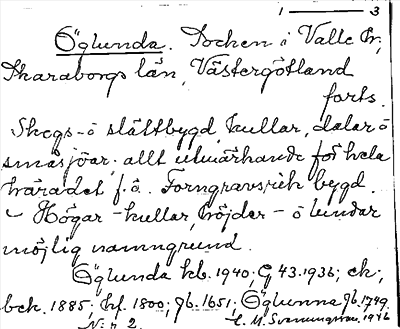 1 — 3
Öglunda. Socken i Valle hr,
Skaraborgs län, Västergötland
forts.
Skogs- o slättbygd, kullar, dalar o
småsjöar; allt utmärkande för hela
häradet f.ö. Forngravsrik bygd.
Högar - kullar, höjder - o lundar
möjlig namngrund.
Öglunda kb. 1940; G 43.1936; ek;
bek. 1885; hf. 1800; Jb. 1651; Öglunna Jb. 1749.
N:r 2. C. M. 1946